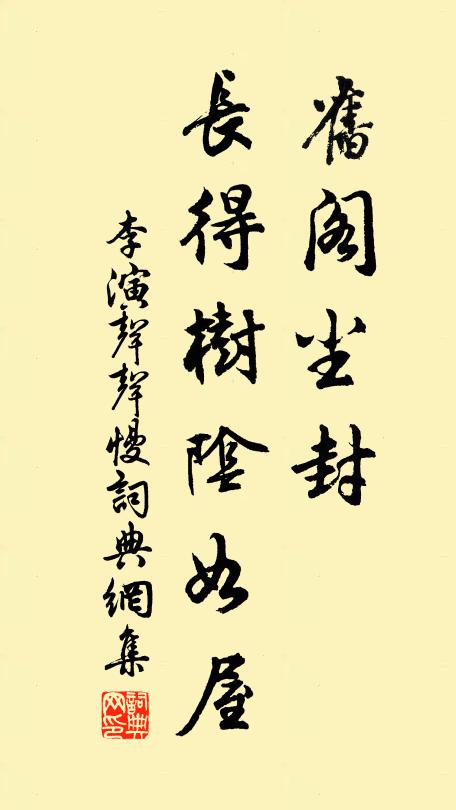 舊阁尘封
長得樹陰如屋
李演聲聲慢詞典網集
詞典网印